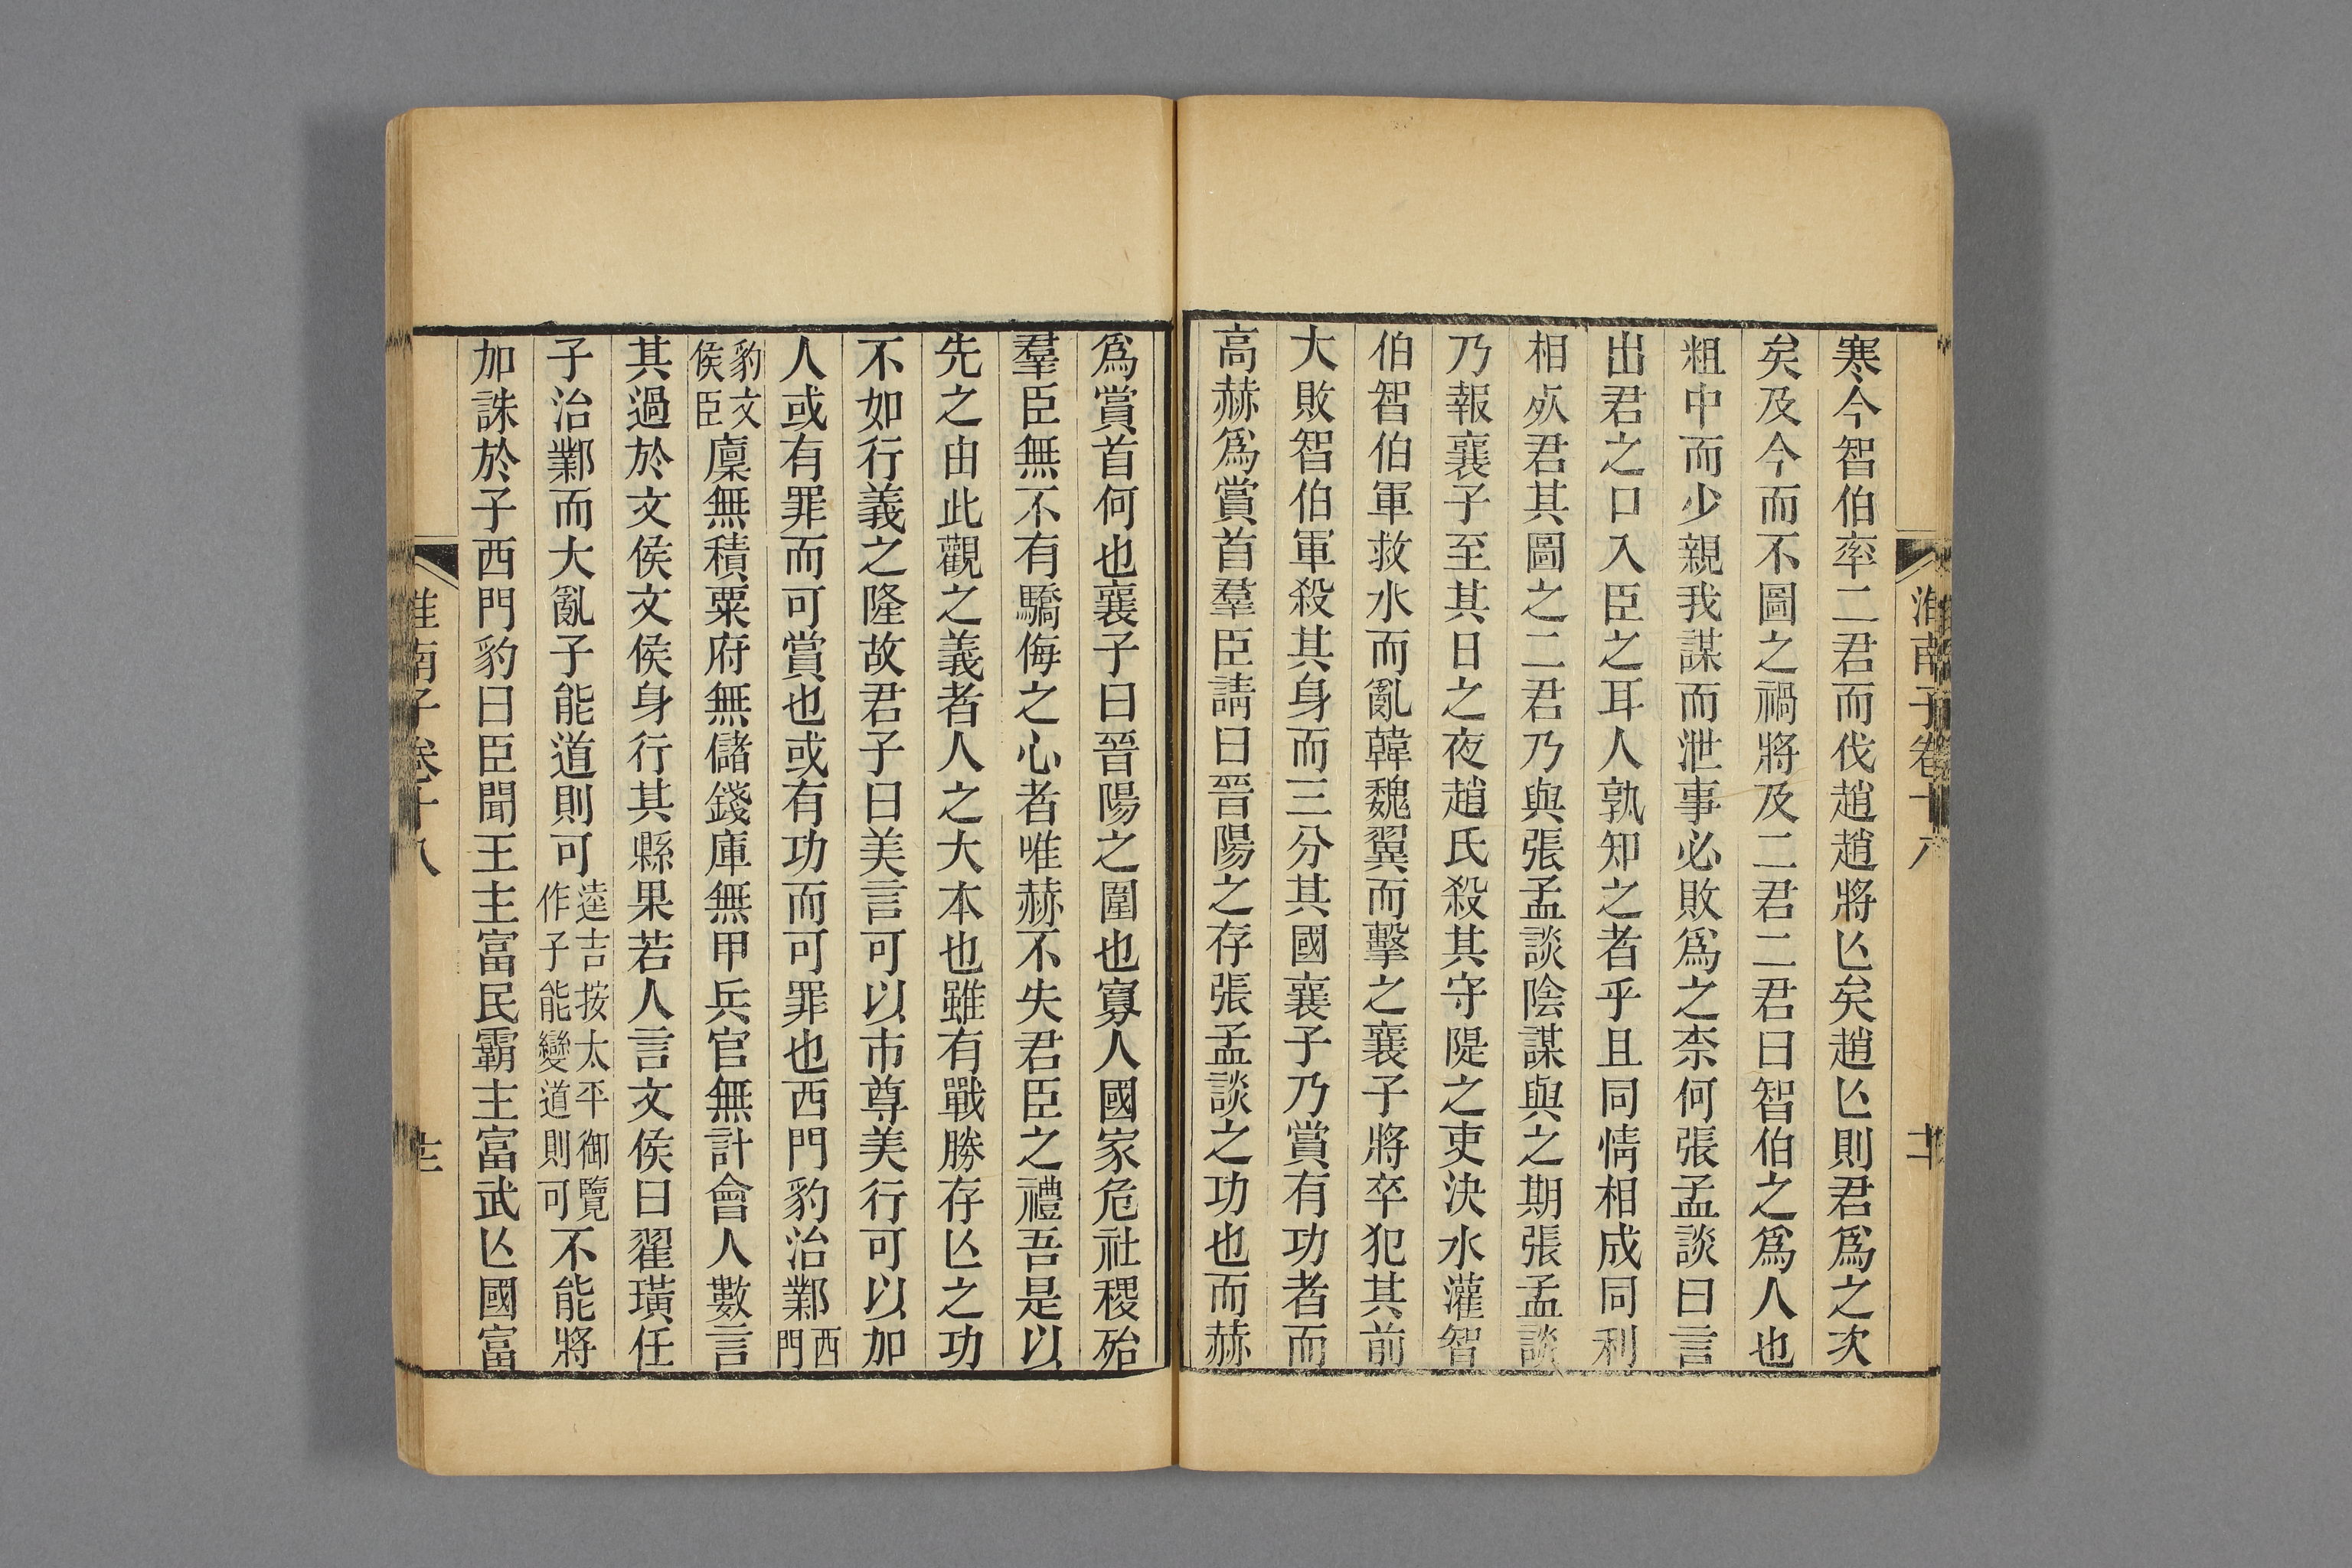 淮南子卷十八
寒今智伯率二君而伐趙趙將亾矣趙亾則君爲之次
矣及今而不圖之禍將及二君二君曰智伯之爲人也
粗中而少親我謀而泄事必敗爲之柰何張孟談曰言
出君之口入臣之耳人孰知之者乎且同情相成同利
相𣦸君其圖之二君乃與張孟談陰謀與之期張孟談
乃報襄子至其日之夜趙氏殺其守隄之吏決水灌智
伯智伯軍救水而亂韓魏翼而擊之襄子將卒犯其前
大敗智伯軍殺其身而三分其國襄子乃賞有功者而
高赫爲賞首羣臣請曰晉陽之存張孟談之功也而赫
爲賞首何也襄子曰晉陽之圍也寡人國家危社稷殆
羣臣無不有驕侮之心者唯赫不失君臣之禮吾是以
先之由此觀之義者人之大本也雖有戰勝存亾之功
不如行義之隆故君子曰美言可以市尊美行可以加
人或有罪而可賞也或有功而可罪也西門豹治鄴西門
豹文侯臣廩無積粟府無儲錢庫無甲兵官無計會人數言
其過於文侯文侯身行其縣果若人言文侯曰翟璜任
子治鄴而大亂子能道則可逵吉按太平御覽作子能變道則可不能將
加誅於子西門豹曰臣聞王主富民霸主富武亾國富
淮南子卷十八